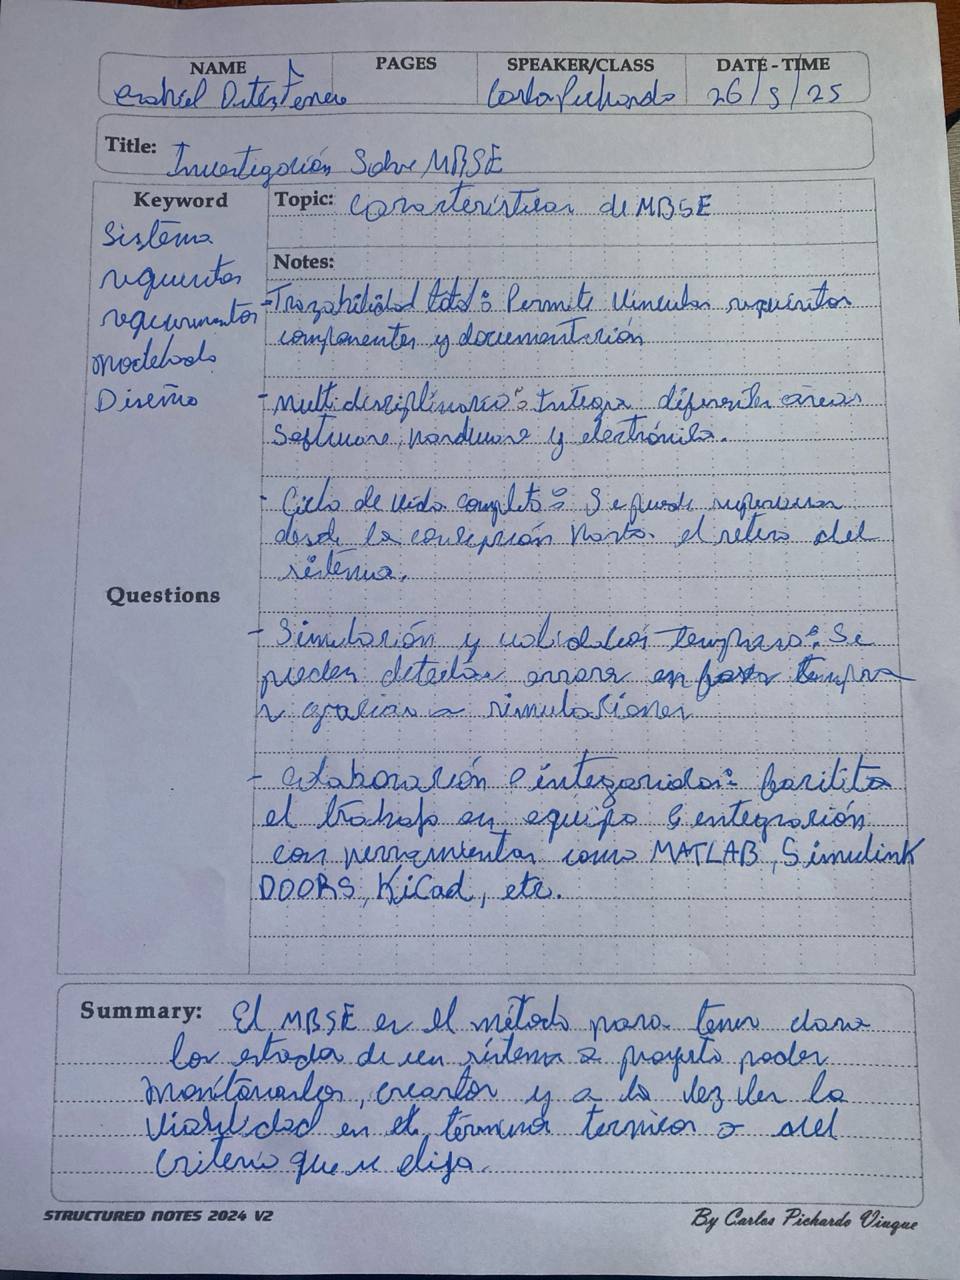 NAME PAGES SPEAKER/CLASS DATE-TIME
Carlos Pichardo 26/5/25
Title: Investigación Sobre MBSE
Keyword
Sistema
requisitos
requerimientos
Modelado
Diseño
Questions
Topic: Características de MBSE
Notes:
-Trazabilidad total: Permite Vincular requisitos
componentes y documentación
-Multidisciplinario: Integra diferentes áreas
Software, hardware y electrónica.
- Ciclo de vida completo: Se puede
desde la concepción hasta el retiro del
sistema.
- Simulación y temprana: Se
pueden detectar errores en fases tempra
n gracias a simulaciones
- Colaboración e facilita
el trabajo en equipo e integración
con herramientas como MATLAB, Simulink
DOORS, KiCad, etc.
Summary: El MBSE es el método para tener claro
los estados de un sistema o proyecto poder
monitorearlos, crearlos y a la vez ver la
viabilidad en el término o del
criterio que se elija.
STRUCTURED NOTES 2024 V2
By Carlos Pichardo Viuque